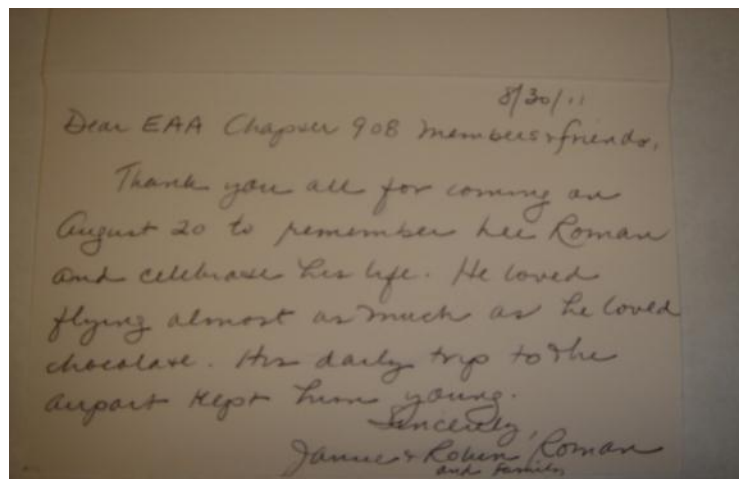 8/30/11
Dear EAA Chapter 908 Members & friends,
Thank you all for coming on
August 20 to remember Lee Roman
and celebrate his life. He loved
flying almost as much as he loved
chocolate. His daily trip to the
airport kept him young.
Sincerely,
& Robin Roman
and Family